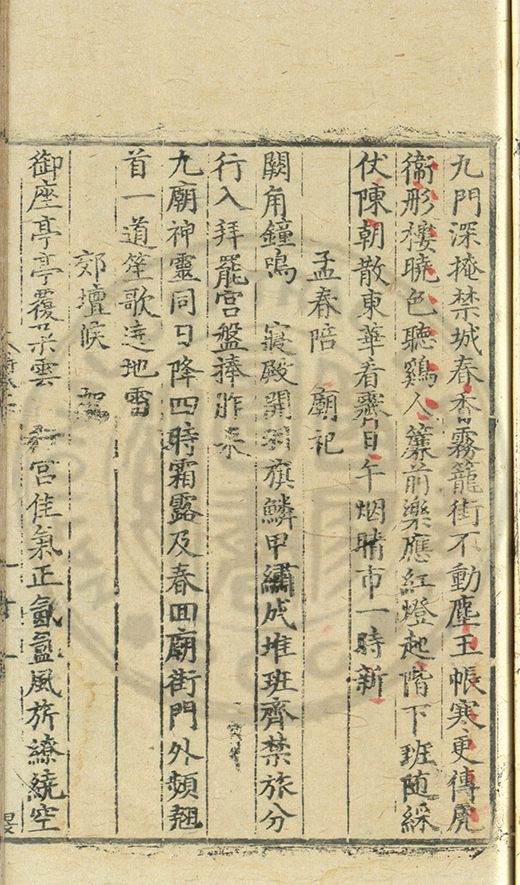 九門深掩禁城春香霧籠街不動塵玉帳寒更傳虎
衛彤樓曉色聽雞人簾前樂應紅燈起階下班随綵
仗陳朝散東華看霽日午烟晴市一時新
孟春陪 廟祀
闕角鐘鳴 寢殿開 旗鱗甲繡成堆班齊禁旅分
行入拜罷宮盤捧胙來
九廟神靈同日降四時霜露及春囬廟街門外頻翹
首一道笙歌迗地雷
郊壇候 駕
御座亭亭覆采雲 行宮佳氣正氤氳風旂繚繞空